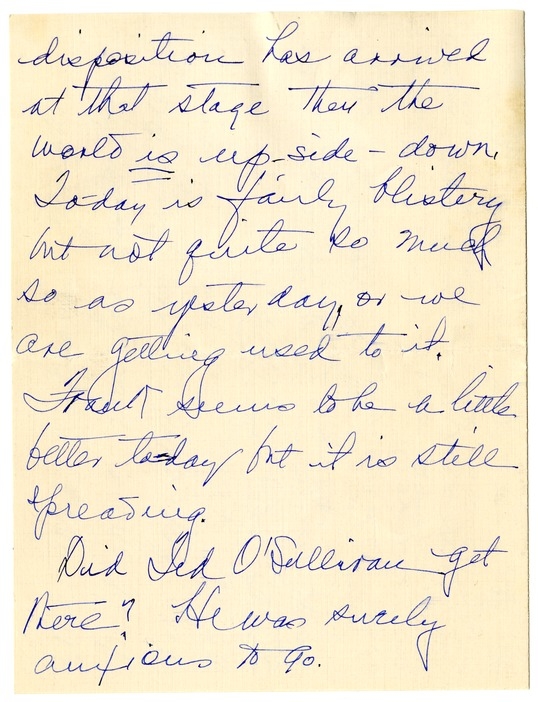 disposition has arrived
at that stage then the
world is up-side-down.
To-day is fairly blistery
but not quite so much
so as yesterday, or we
are getting used to it.
Frank seems to be a little
better to-day but it is still
spreading.
Did Ted O'Sullivan get
there? He was surely
anxious to go.